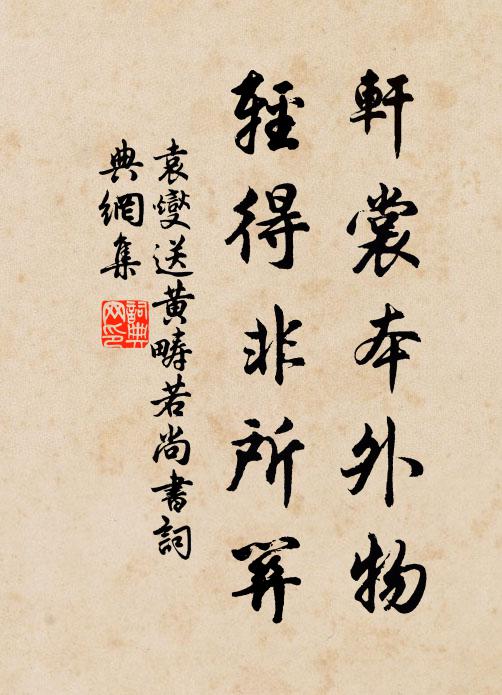 軒裳本外物
輕得非所
袁燮送黃疇若尚書詞
典網集
詞典
网印